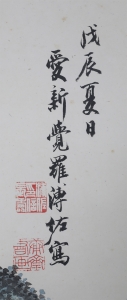 戊辰夏日
愛新覺羅溥佐寫